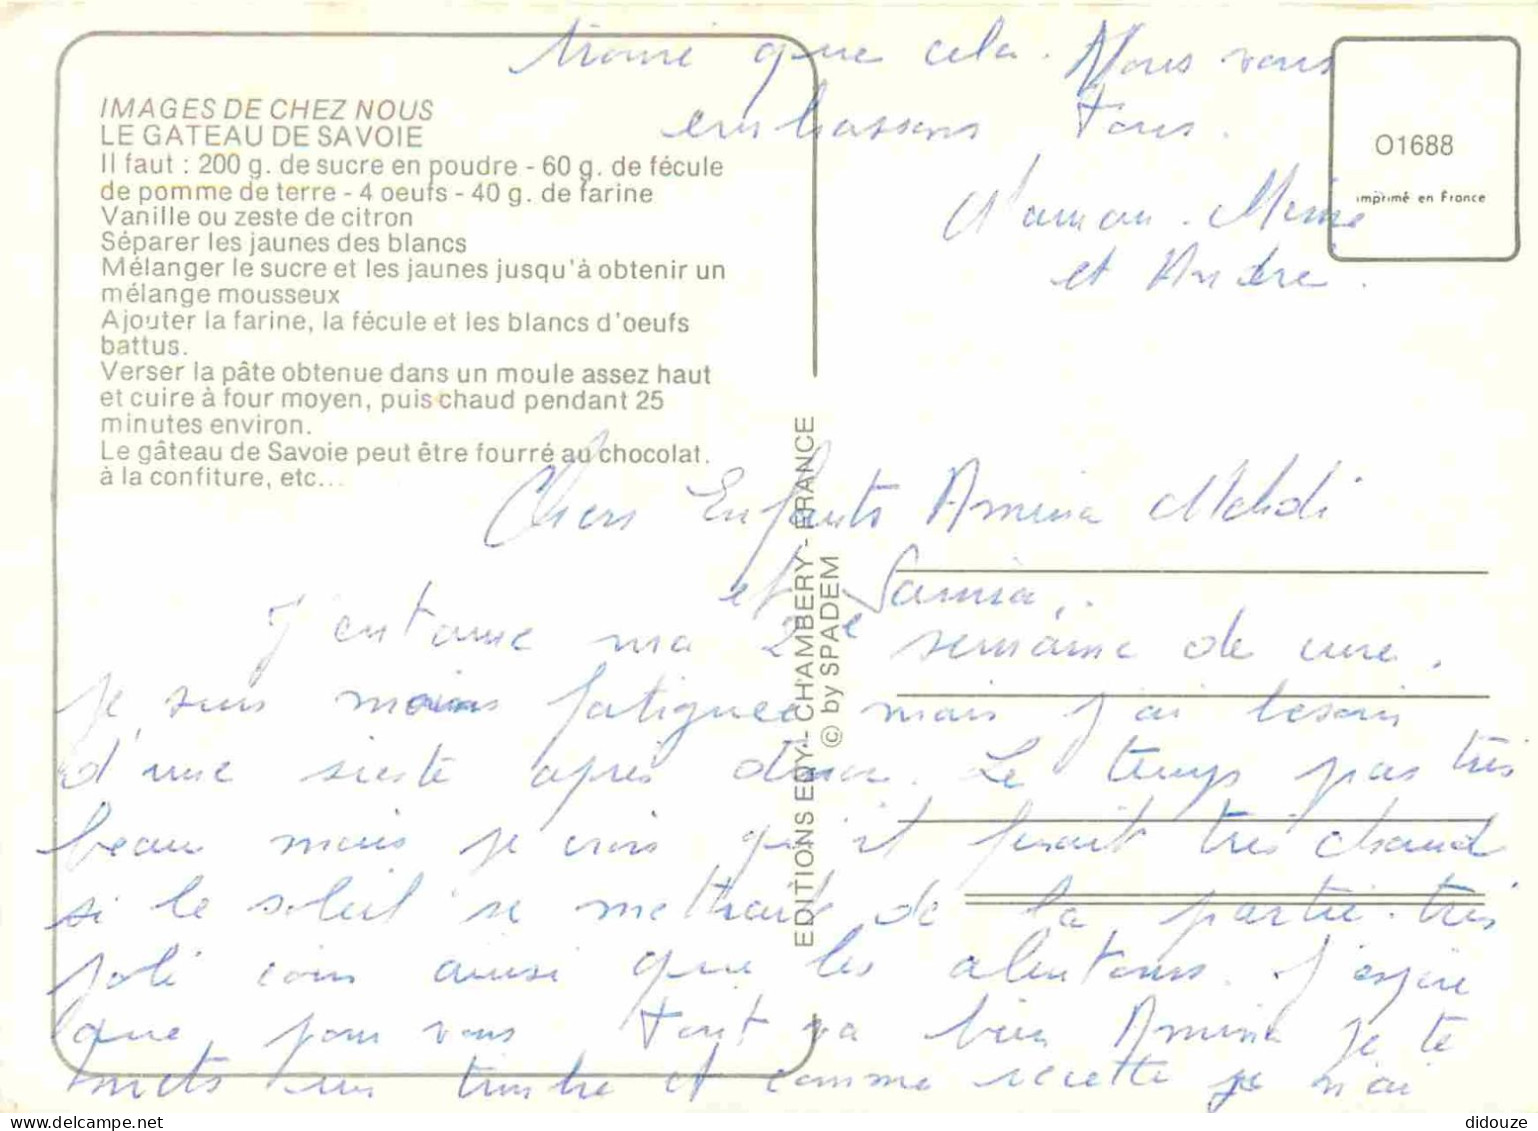 IMAGES DE CHEZ NOUS
LE GATEAU DE SAVOIE
Il faut : 200 g. de sucre en poudre - 60 g. de fécule
de pomme de terre - 4 oeufs - 40 g. de farine
Vanille ou zeste de citron
Séparer les jaunes des blancs
Mélanger le sucre et les jaunes jusqu'à obtenir un
mélange mousseux
Ajouter la farine, la fécule et les blancs d'oeufs
battus.
Verser la pâte obtenue dans un moule assez haut
et cuire à four moyen, puis chaud pendant 25
minutes environ.
Le gâteau de Savoie peut être fourré au chocolat.
à la confiture, etc...
EDITIONS EDY - CHAMBERY - FRANCE
© by SPADEM
O1688
imprimé en France
Chers Enfants Amina Mehdi
et Samia,
J'entame ma 2e semaine de cure.
je suis moins fatiguée mais j'ai besoin
d'une sieste après . Le temps pas très
beau mais je crois qu'il ferait très chaud
si le soleil se mettrait de la partie. très
joli coin ainsi que les alentours. J'espère
que pour vous tout va bien Amina je te
mets un timbre et comme recette je n'ai
trouvé que cela. Nous vous
embrassons tous.
Maman. Mimi
et André.
didouze